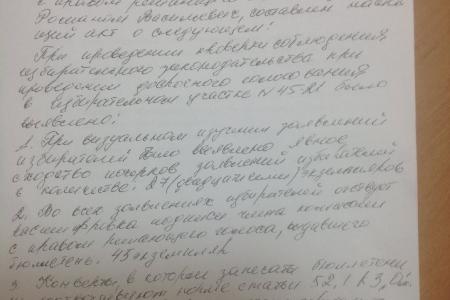 с правом решающего
Васильевич, составлен
щий акт о следующем:
При проведении проверки соблюдения
избирательного законодательства при
проведении досрочного голосования
в избирательном участке № 45-
было
выявлено:
1. При визуальном изучении заявлений
избирателей было выявлено явное
сходство почерков заявлений избирателей
в количестве: 27 (двадцати семи) экземпляров
2. Во всех заявлениях избирателей отсутствует
расшифровка подписи члена комиссии
с правом решающего голоса, выдавшего
бюллетень. 45 экземпляр
3. Конверты, в которой запечатан бюллетени
норме статьи 52, 1 в 3,